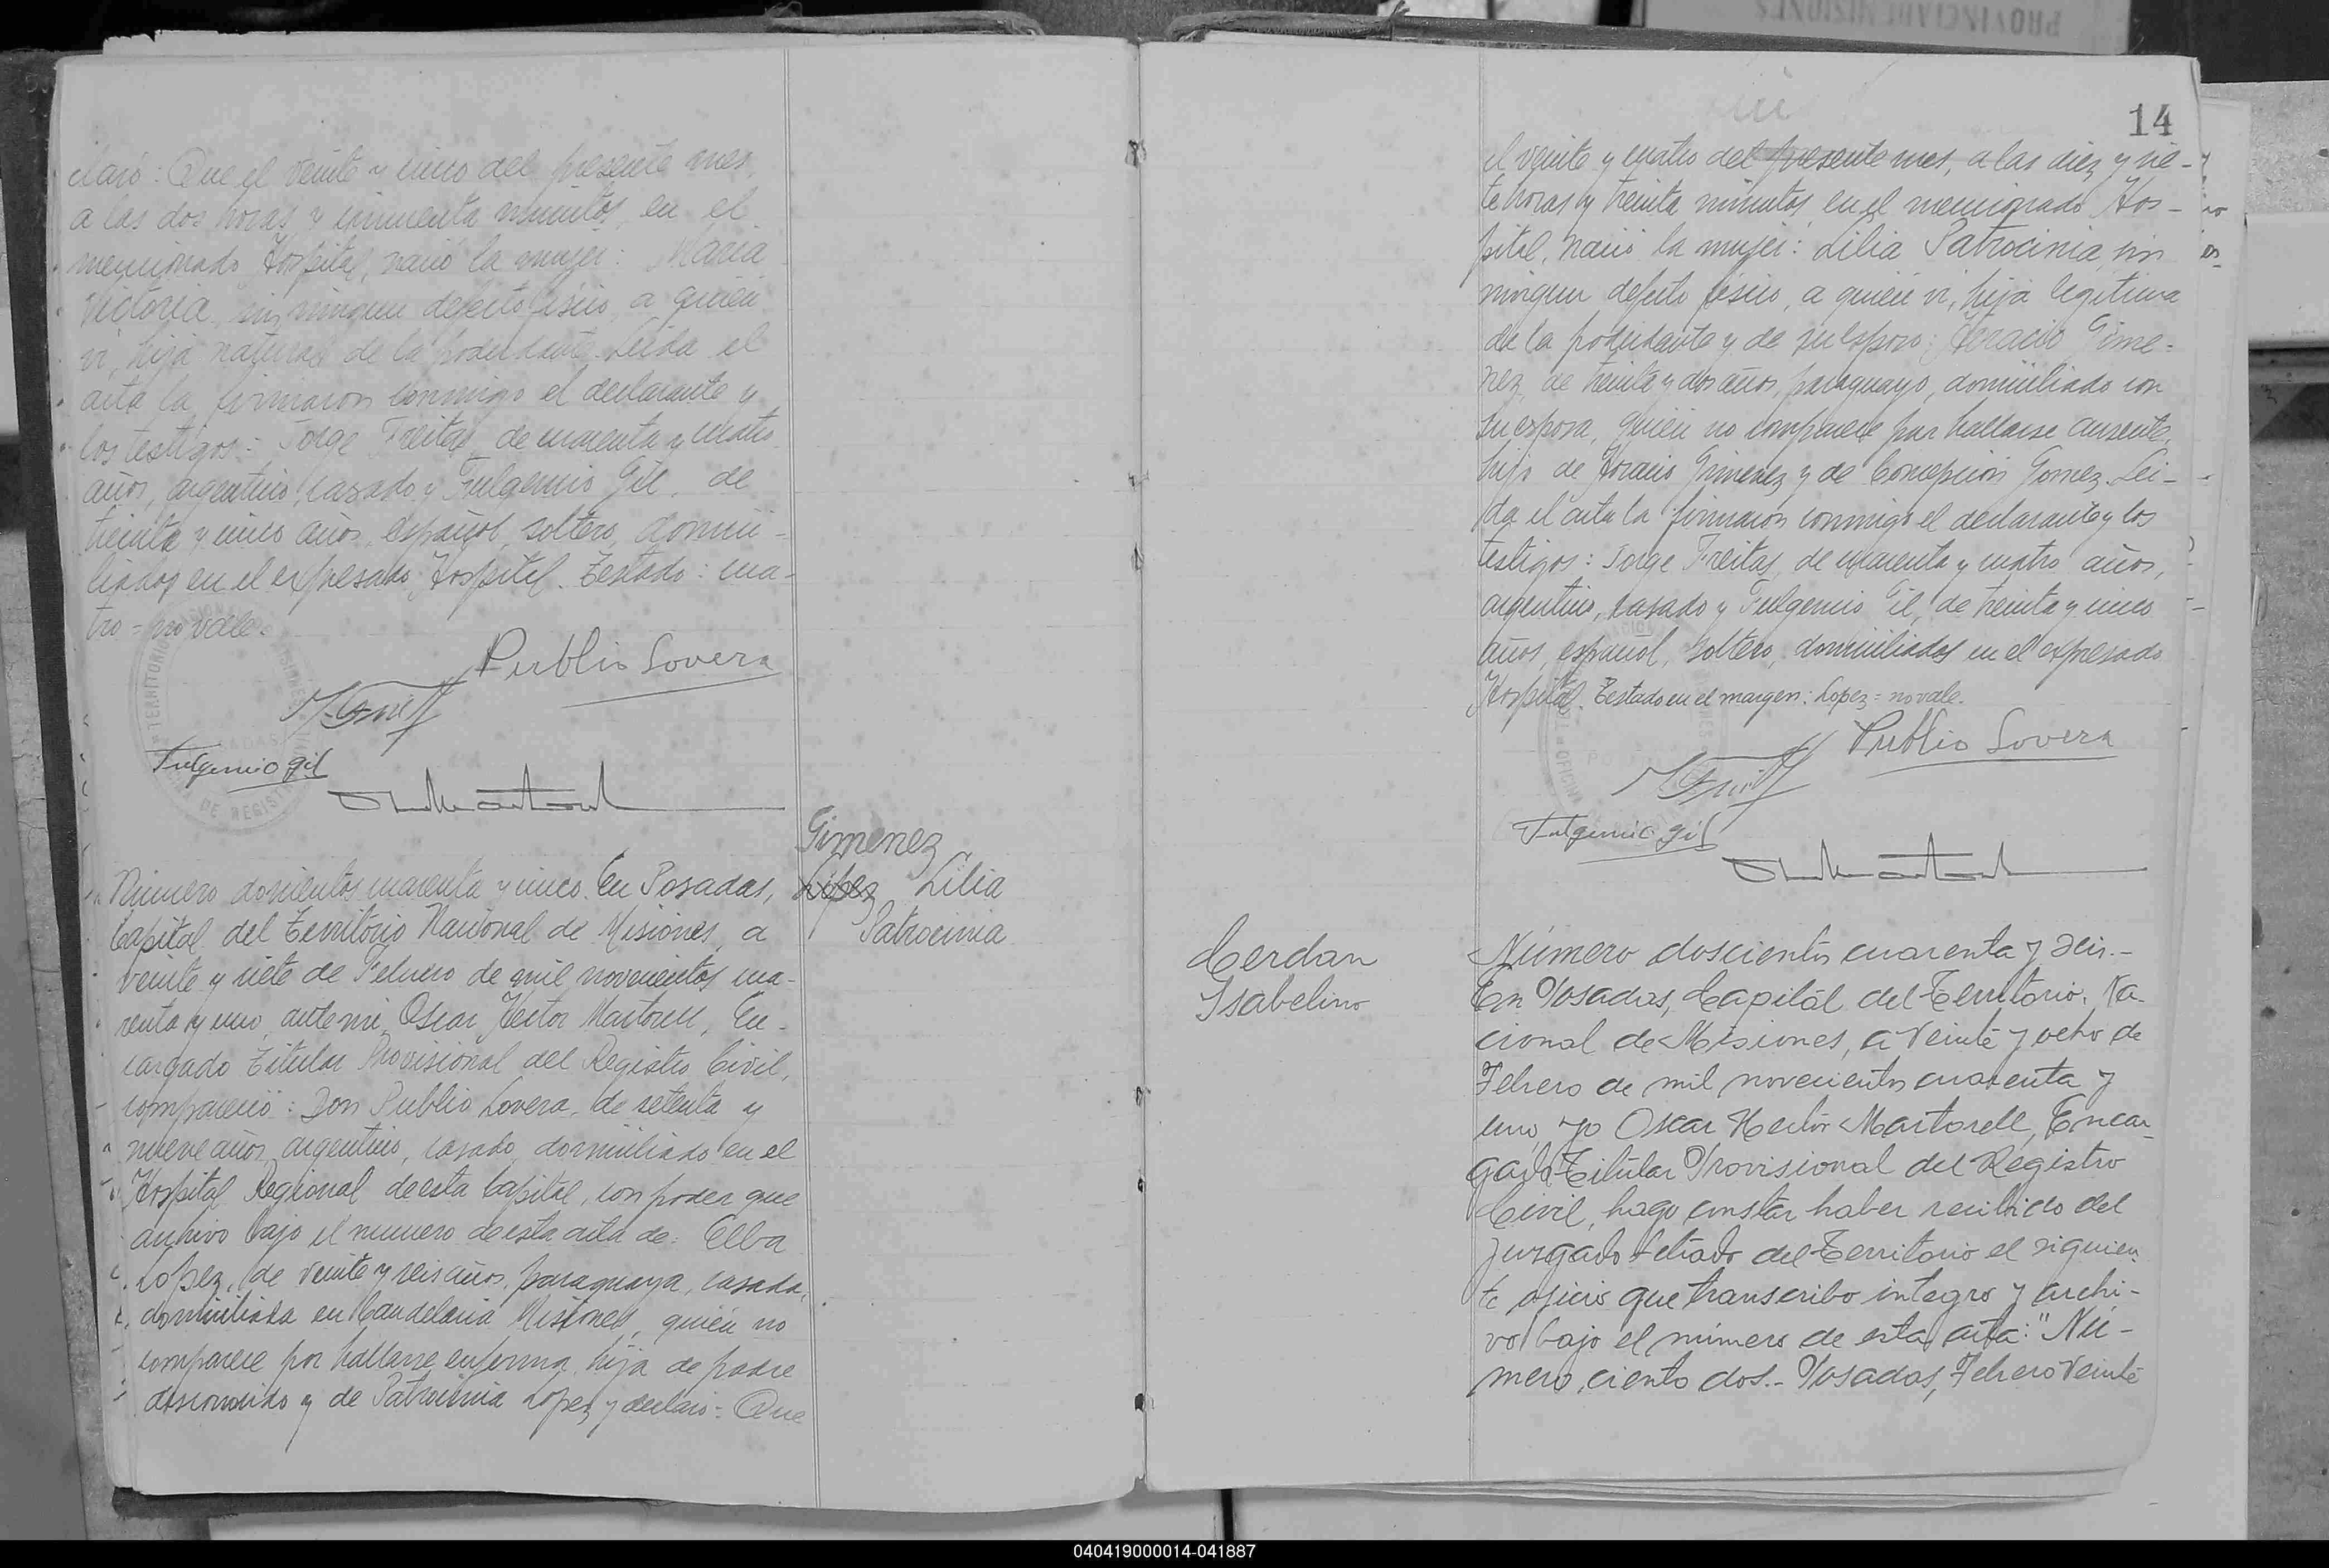 claró: Que el veinte y cinco del presente mes,
a las dos horas y cincuenta minutos, en el
mencionado Hospital, nació la mujer: Maria
Victoria, sin ningun defecto fisico, a quien
vi, hija natural de la poderdante. Leida el
acta la firmaron conmigo el declarante y
los testigos: Jorge Freitas, de cuarenta y cuatro
años, argentino, casado y Fulgencio Gil, de
treinta y cinco años, español, soltero, domici-
liados en el expresado Hospital. Testado: cua-
tro = no vale.
Publio Lovera
Fulgencio gil
Gimenez
Lopez Lilia
Patrocinia
Número doscientos cuarenta y cinco. En Posadas,
Capital del Territorio Nacional de Misiones, a
veinte y siete de Febrero de mil novecientos cua-
renta y uno, ante mi, Oscar Hector Martorell, En-
cargado Titular Provisional del Registro Civil,
compareció: Don Publio Lovera, de setenta y
nueve años, argentino, casado, domiciliado en el
Hospital Regional de esta Capital, con poder que
archivo bajo el numero de esta acta de: Elba
Lopez, de veinte y seis años, paraguaya, casada,
domiciliada en Candelaria Misiones, quién no
comparece por hallarse enferma, hija de padre
desconocido y de Patrocinia Lopez y declaró: Que
14
el veinte y cuatro del presente mes, a las diez y sie-
te horas y treinta minutos, en el mencionado Hos-
pital, nació la mujer: Lilia Patrocinia, sin
ningun defecto fisico, a quién vi, hija legitima
de la poderdante y de su esposo: Horacio Gime-
nez, de treinta y dos años, paraguayo, domiciliado con
su esposa, quién no comparece por hallarse ausente,
hijo de Horacio Gimenez y de Concepción Gomez. Lei-
da el acta la firmaron conmigo el declarante y los
testigos: Jorge Freitas, de cuarenta y cuatro años,
argentino, casado y Fulgencio Gil, de treinta y cinco
años, español, soltero, domiciliados en el expresado
Hospital. Testado en el margen: Lopez = no vale.
Publio Lovera
Fulgencio gil
Cerdan
Isabelino
Número doscientos cuarenta y seis.-
En Posadas, Capital del Territorio Na-
cional de Misiones, a veinte y ocho de
Febrero de mil novecientos cuarenta y
uno, yo Oscar Hector Martorell, Encar-
gado Titular Provisional del Registro
Civil, hago constar haber recibido del
Juzgado Letrado del Territorio el siguien-
te oficio que transcribo integro y archi-
vo bajo el número de esta acta: "Nú-
mero ciento dos.- Posadas, Febrero veinte
040419000014-041887